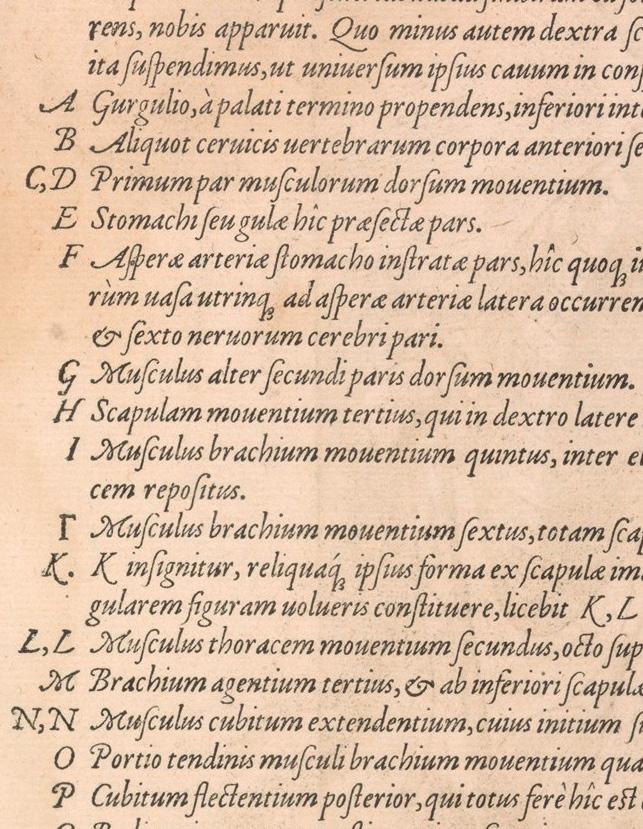 rens, nobis apparuit. Quo minus autem dextra sc
ita suſpendimus, ut uniuerſum ipſius cauum in conſ
A Gurgulio, à palati termino propendens, inferiori int
B Aliquot ceruicis uertebrarum corpora anteriori ſe
C, D Primum par muſculorum dorſum mouentium.
E Stomachi ſeu gulæ hîc præſectæ pars.
F Aſperæ arteriæ ſtomacho inſtratæ pars, hîc quoq; i
rùm uaſa utrinq; ad aſperæ arteriæ latera occurren
& ſexto neruorum cerebri pari.
G Muſculus alter ſecundi paris dorſum mouentium.
H Scapulam mouentium tertius, qui in dextro latere
I Muſculus brachium mouentium quintus, inter e
cem repoſitus.
Γ Muſculus brachium mouentium ſextus, totam ſcap
K. K inſignitur, reliquaq́; ipſius forma ex ſcapulæ im
gularem figuram uolueris conſtituere, licebit K, L
L, L Muſculus thoracem mouentium ſecundus, octo ſup
M Brachium agentium tertius, & ab inferiori ſcapulæ
N, N Muſculus cubitum extendentium, cuius initium ſi
O Portio tendinis muſculi brachium mouentium qua
P Cubitum flectentium poſterior, qui totus ferè hîc eſt